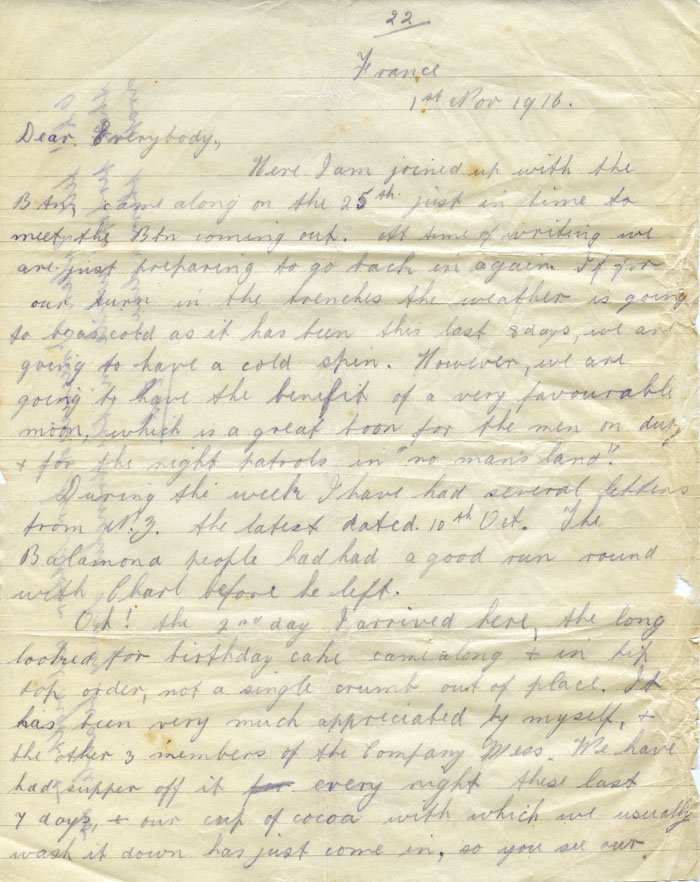 22
France
1st Nov 1916.
Dear Everybody,
Here I am joined up with the
Btn, came along on the 25th just in time to
meet the Btn coming out. At time of writing we
are just preparing to go back in again. If for
our turn in the trenches the weather is going
to be as cold as it has been this last 8 days, we are
going to have a cold spin. However, we are
going to have the benefit of a very favourable
moon, which is a great boon for the men on duty
+ for the night patrols in "no man's land".
During the week I have had several letters
from N.Z. the latest dated 10th Oct. The
Balamona people had had a good run round
with Charl before he left.
Ooh! the 2nd day I arrived here, the long
looked for birthday cake came along + in tip
top order, not a single crumb out of place. It
has been very much appreciated by myself, +
the other 3 members of the Company Mess. We have
had supper off it for every night these last
7 days, + our cup of cocoa with which we usually
wash it down has just come in, so you see our